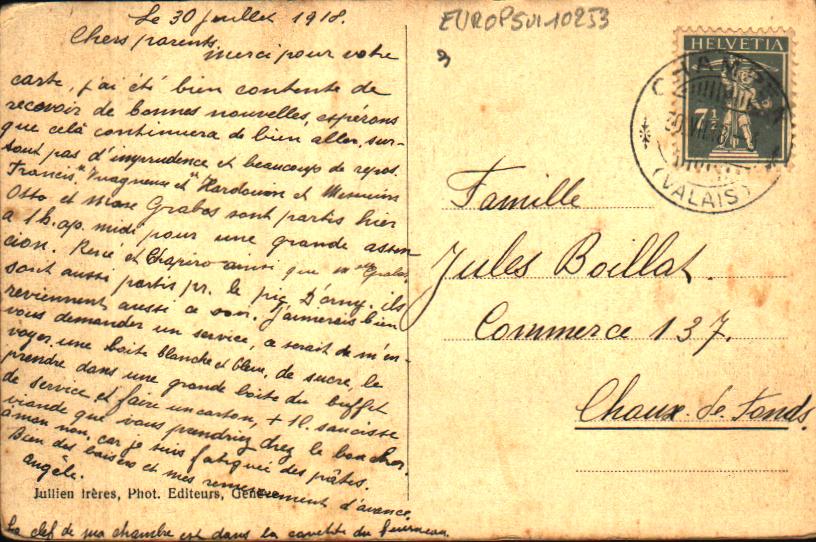 Le 30 juillet 1918.
Chers parents,
merci pour votre
carte, j'ai été bien contente de
recevoir de bonnes nouvelles, espérons
que celà continuera de bien aller, sur-
tout pas d'imprudence et beaucoup de repos.
Francis, et "Hardouin et Messieurs
Otto et Grabos sont partis hier
à 1 h. ap. midi pour une grande ascen
cion. René et Chapiro ainsi que Grabos
sont aussi partis pr. le pic D'orny. ils
reviennent aussi ce soir. J'aimerais bien
vous demander un service, ce serait de m'en-
voyer une boîte blanche et bleu, de sucre, le
prendre dans une grande boîte du buffet
de service et faire un carton, + 1 saucisse
viande que vous prendriez chez le boucher.
à man non, car je suis fatiguée des pâtes.
Bien des baisers et mes remerciement d'avance.
Angèle.
La clef de ma chambre est dans la cavette du fourneau.
Jullien frères, Phot. Editeurs, Genève
EUROPSUI 10253
HELVETIA
7½
CHAMPEX
30.VII.18
(VALAIS)
Famille
Jules Boillat.
Commerce 137.
Chaux-de-Fonds.